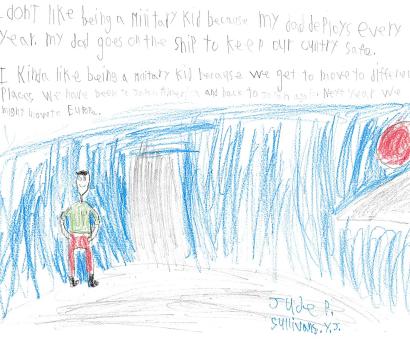 I don't like being a Military Kid because my dad deploys every
year. my dad goes on the ship to keep our cuntry safe.
I Kinda like being a military Kid because we get to move to different
Places. We have been to and back to Next year we
might move to
Jude P.
Sullivans. Y.J.